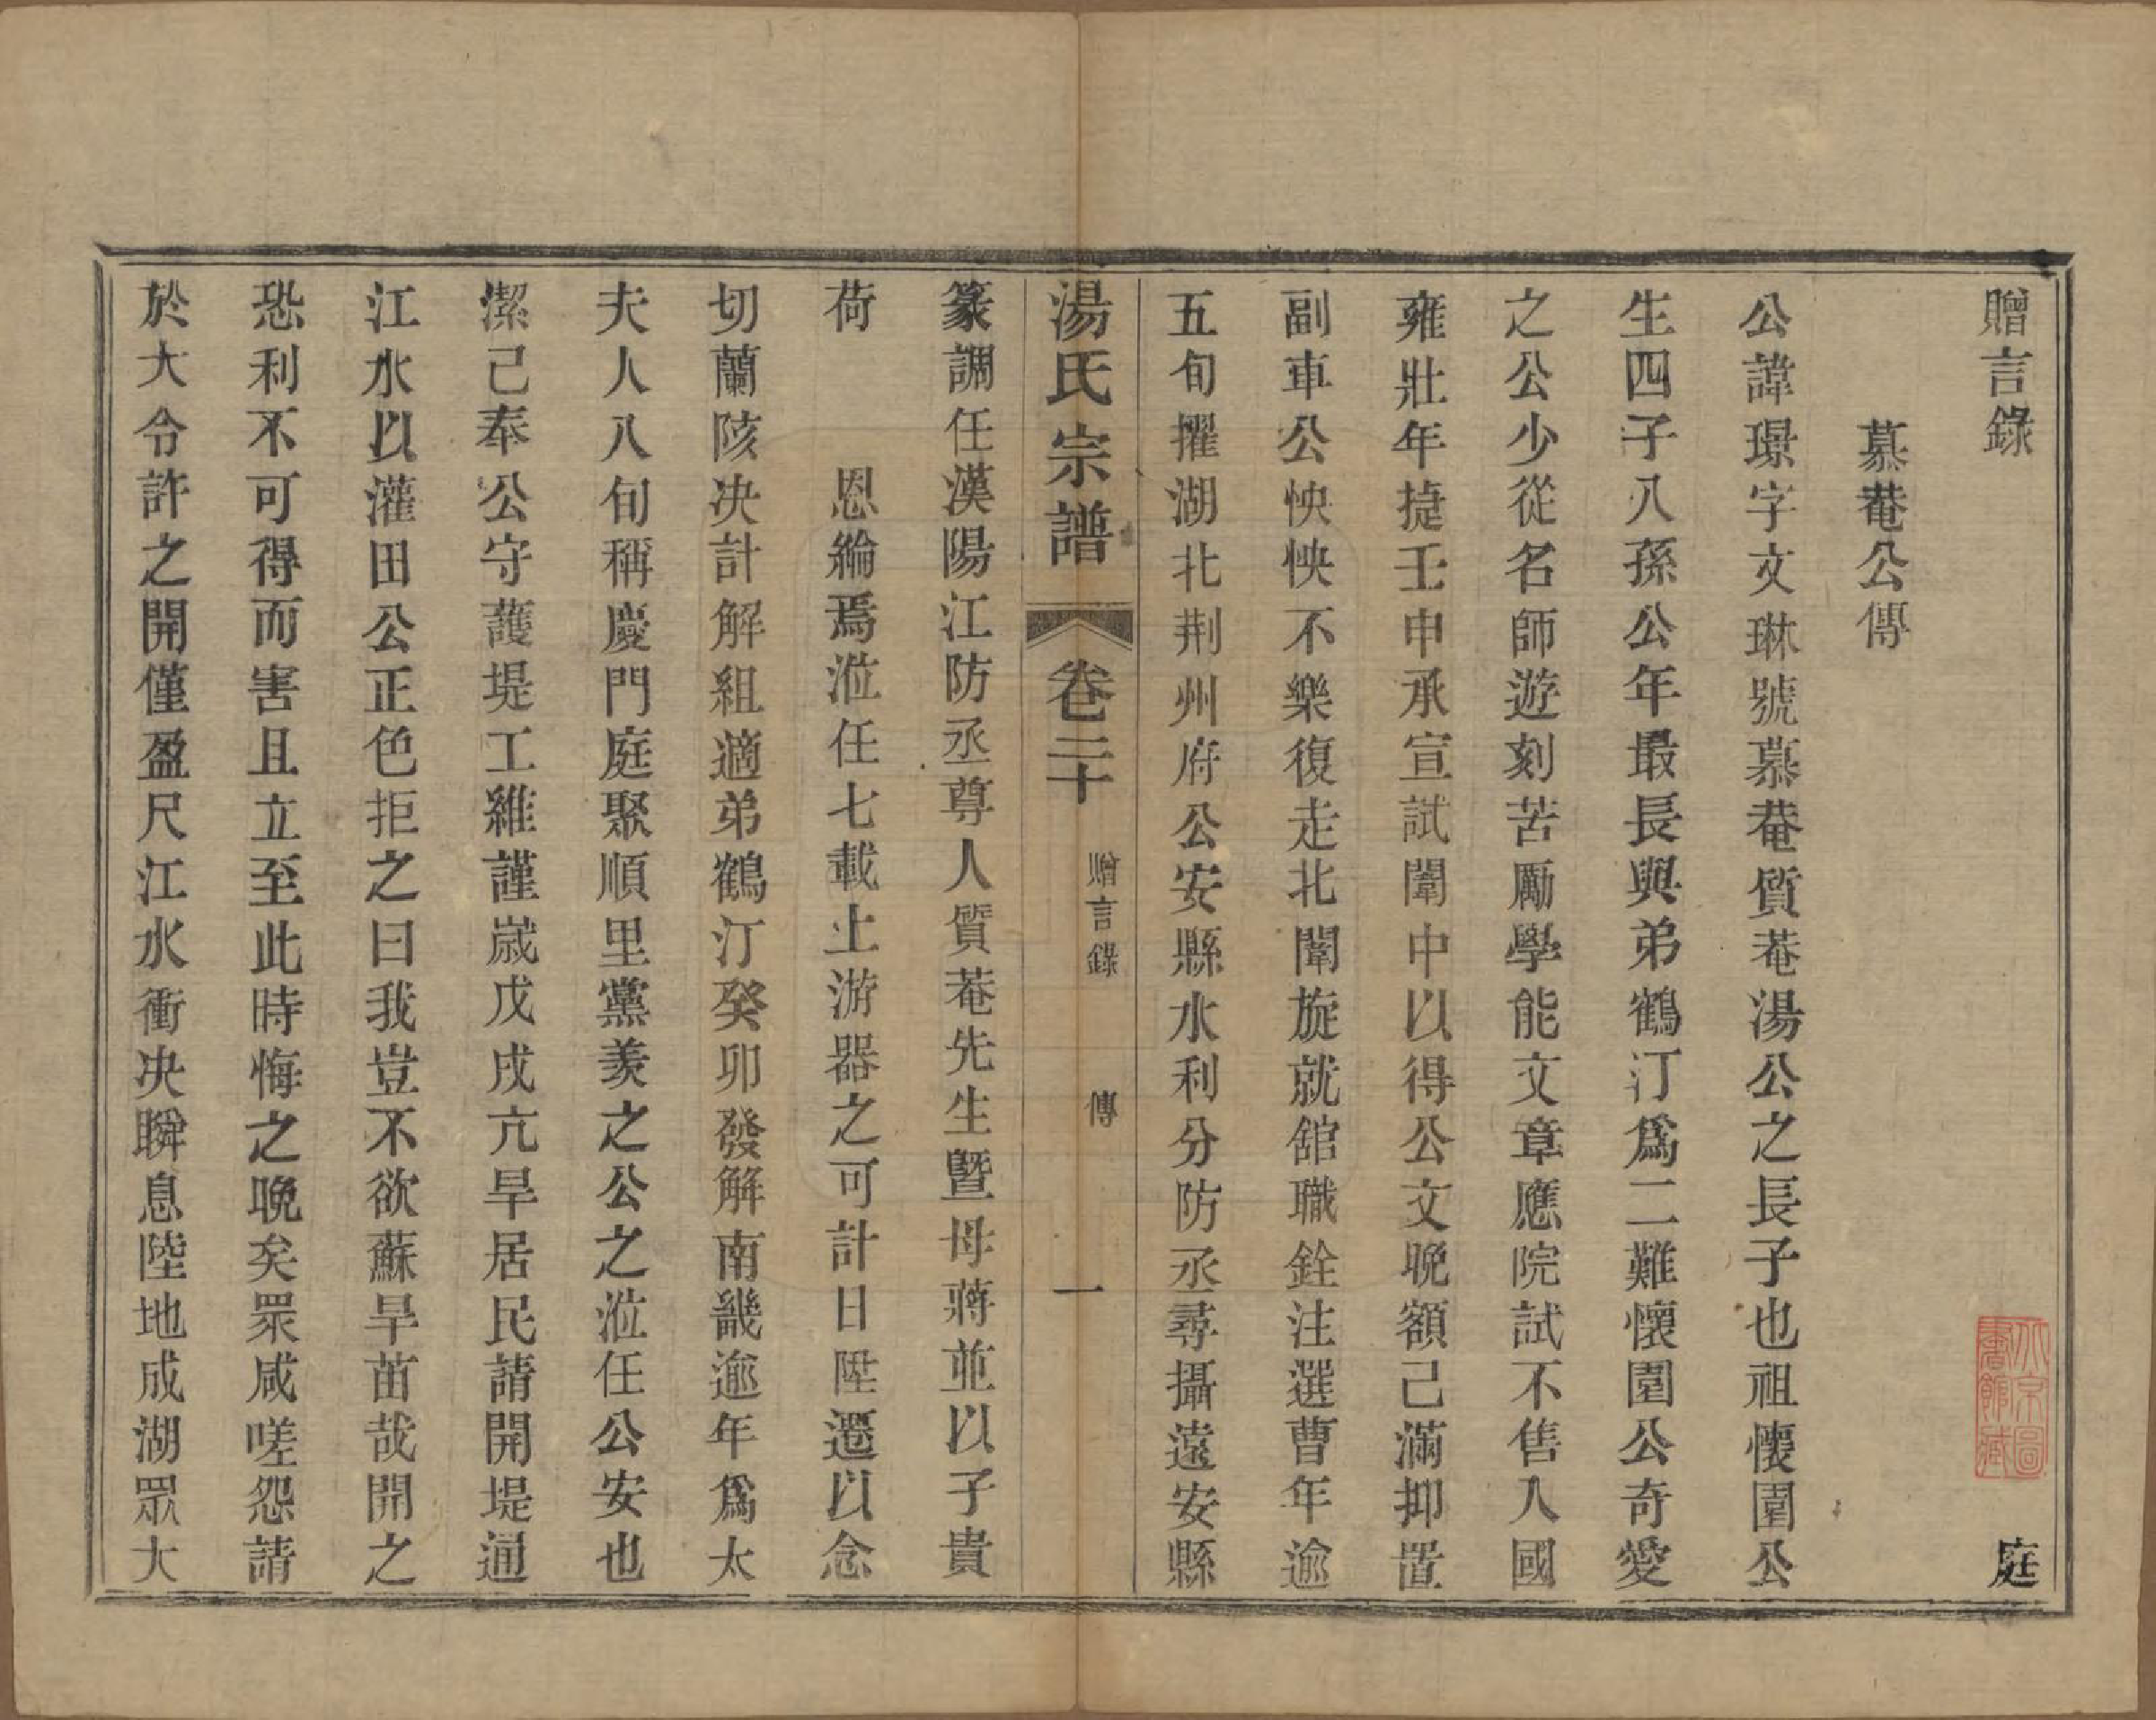 贈言錄　庭
慕菴公傳
公諱璟字文琳號慕菴質菴湯公之長子也祖懷園公
生四子八孫公年最長與弟鶴汀爲二難懷園公奇愛
之公少從名師遊刻苦勵學能文章應院試不售入國
雍壯年捷壬申承宣試闈中以得公文晚額已滿抑置
副車公怏怏不樂復走北闈旋就舘職銓注選曹年逾
五旬擢湖北荆州府公安縣水利分防丞尋攝遠安縣
湯氏宗譜　卷二十　贈言錄　傳　一
篆調任漢陽江防丞尊人質菴先生暨母蔣並以子貴
荷　恩綸焉涖任七載上游器之可計日陞遷以念
切蘭陔决計解組適弟鶴汀癸卯發解南畿逾年爲太
夫人八旬稱慶門庭聚順里黨羨之公之涖任公安也
潔己奉公守護堤工維謹歲戊戌亢旱居民請開堤通
江水以灌田公正色拒之曰我豈不欲蘇旱苗哉開之
恐利不可得而害且立至此時悔之晚矣眾咸嗟怨請
於大令許之開僅盈尺江水衝决瞬息陸地成湖眾大
北京圖書館藏